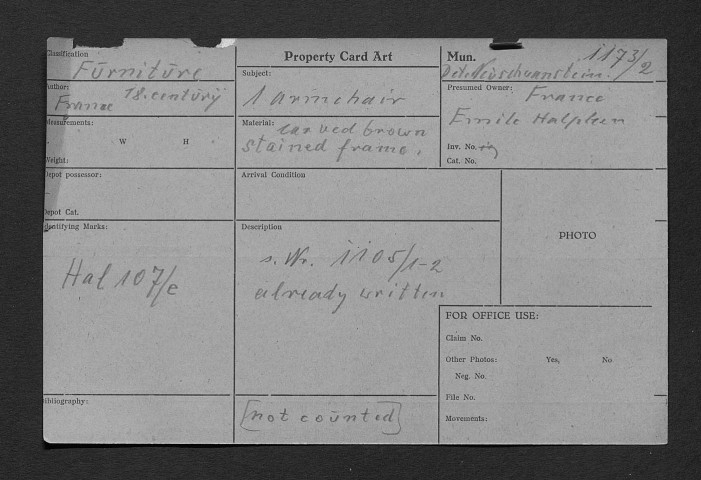 Classification
Furniture
Property Card Art
Mun. 1173/2
Det. Neuschwanstein.
Author: 18. century
France
Subject:
1 armchair
Presumed Owner: France
Emile Halphen
Measurements:
W H
Weight:
Material: carved brown
stained frame.
Inv. No.
Cat. No.
Depot possessor:
Arrival Condition
Depot Cat.
Identifying Marks:
Hal 107/e
Description
s. Nr. 1105/1-2
already written
PHOTO
FOR OFFICE USE:
Claim No.
Other Photos: Yes, No
Neg. No.
File No.
Movements:
Bibliography:
[not counted]